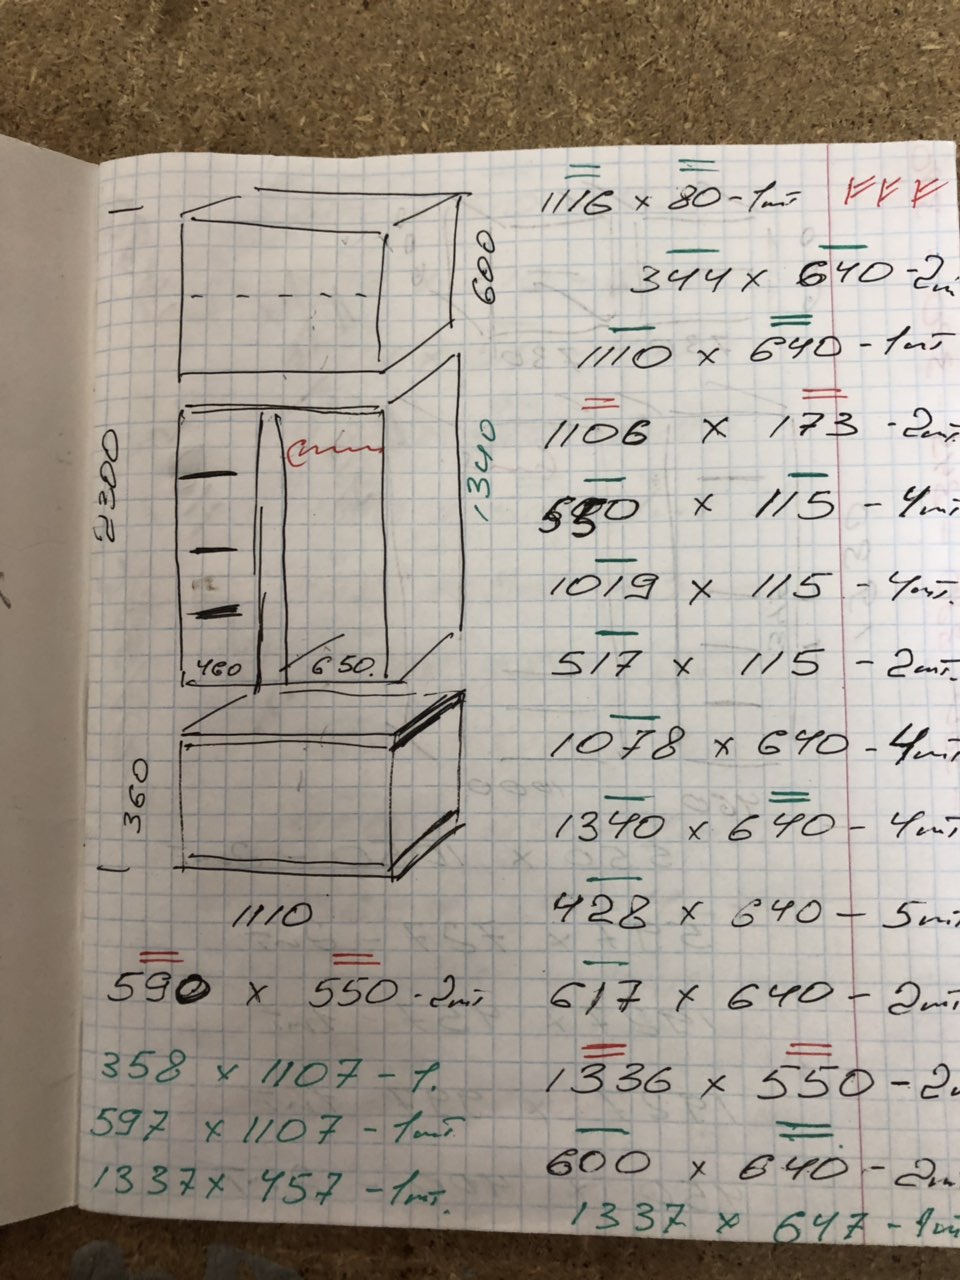 600
2300
1340
460
650
360
1110
590 x 550 - 2шт
358 x 1107 - 1.
597 x 1107 - 1шт.
1337 x 457 - 1шт.
1116 x 80 - 1шт
344 x 640 - 2ш
1110 x 640 - 1шт
1106 x 173 - 2шт.
550 x 115 - 4шт
1019 x 115 - 4шт.
517 x 115 - 2шт.
1078 x 640 - 4шт
1340 x 640 - 4шт
428 x 640 - 5шт
617 x 640 - 2шт
1336 x 550 - 2ш
600 x 640 - 2ш
1337 x 647 - 1шт